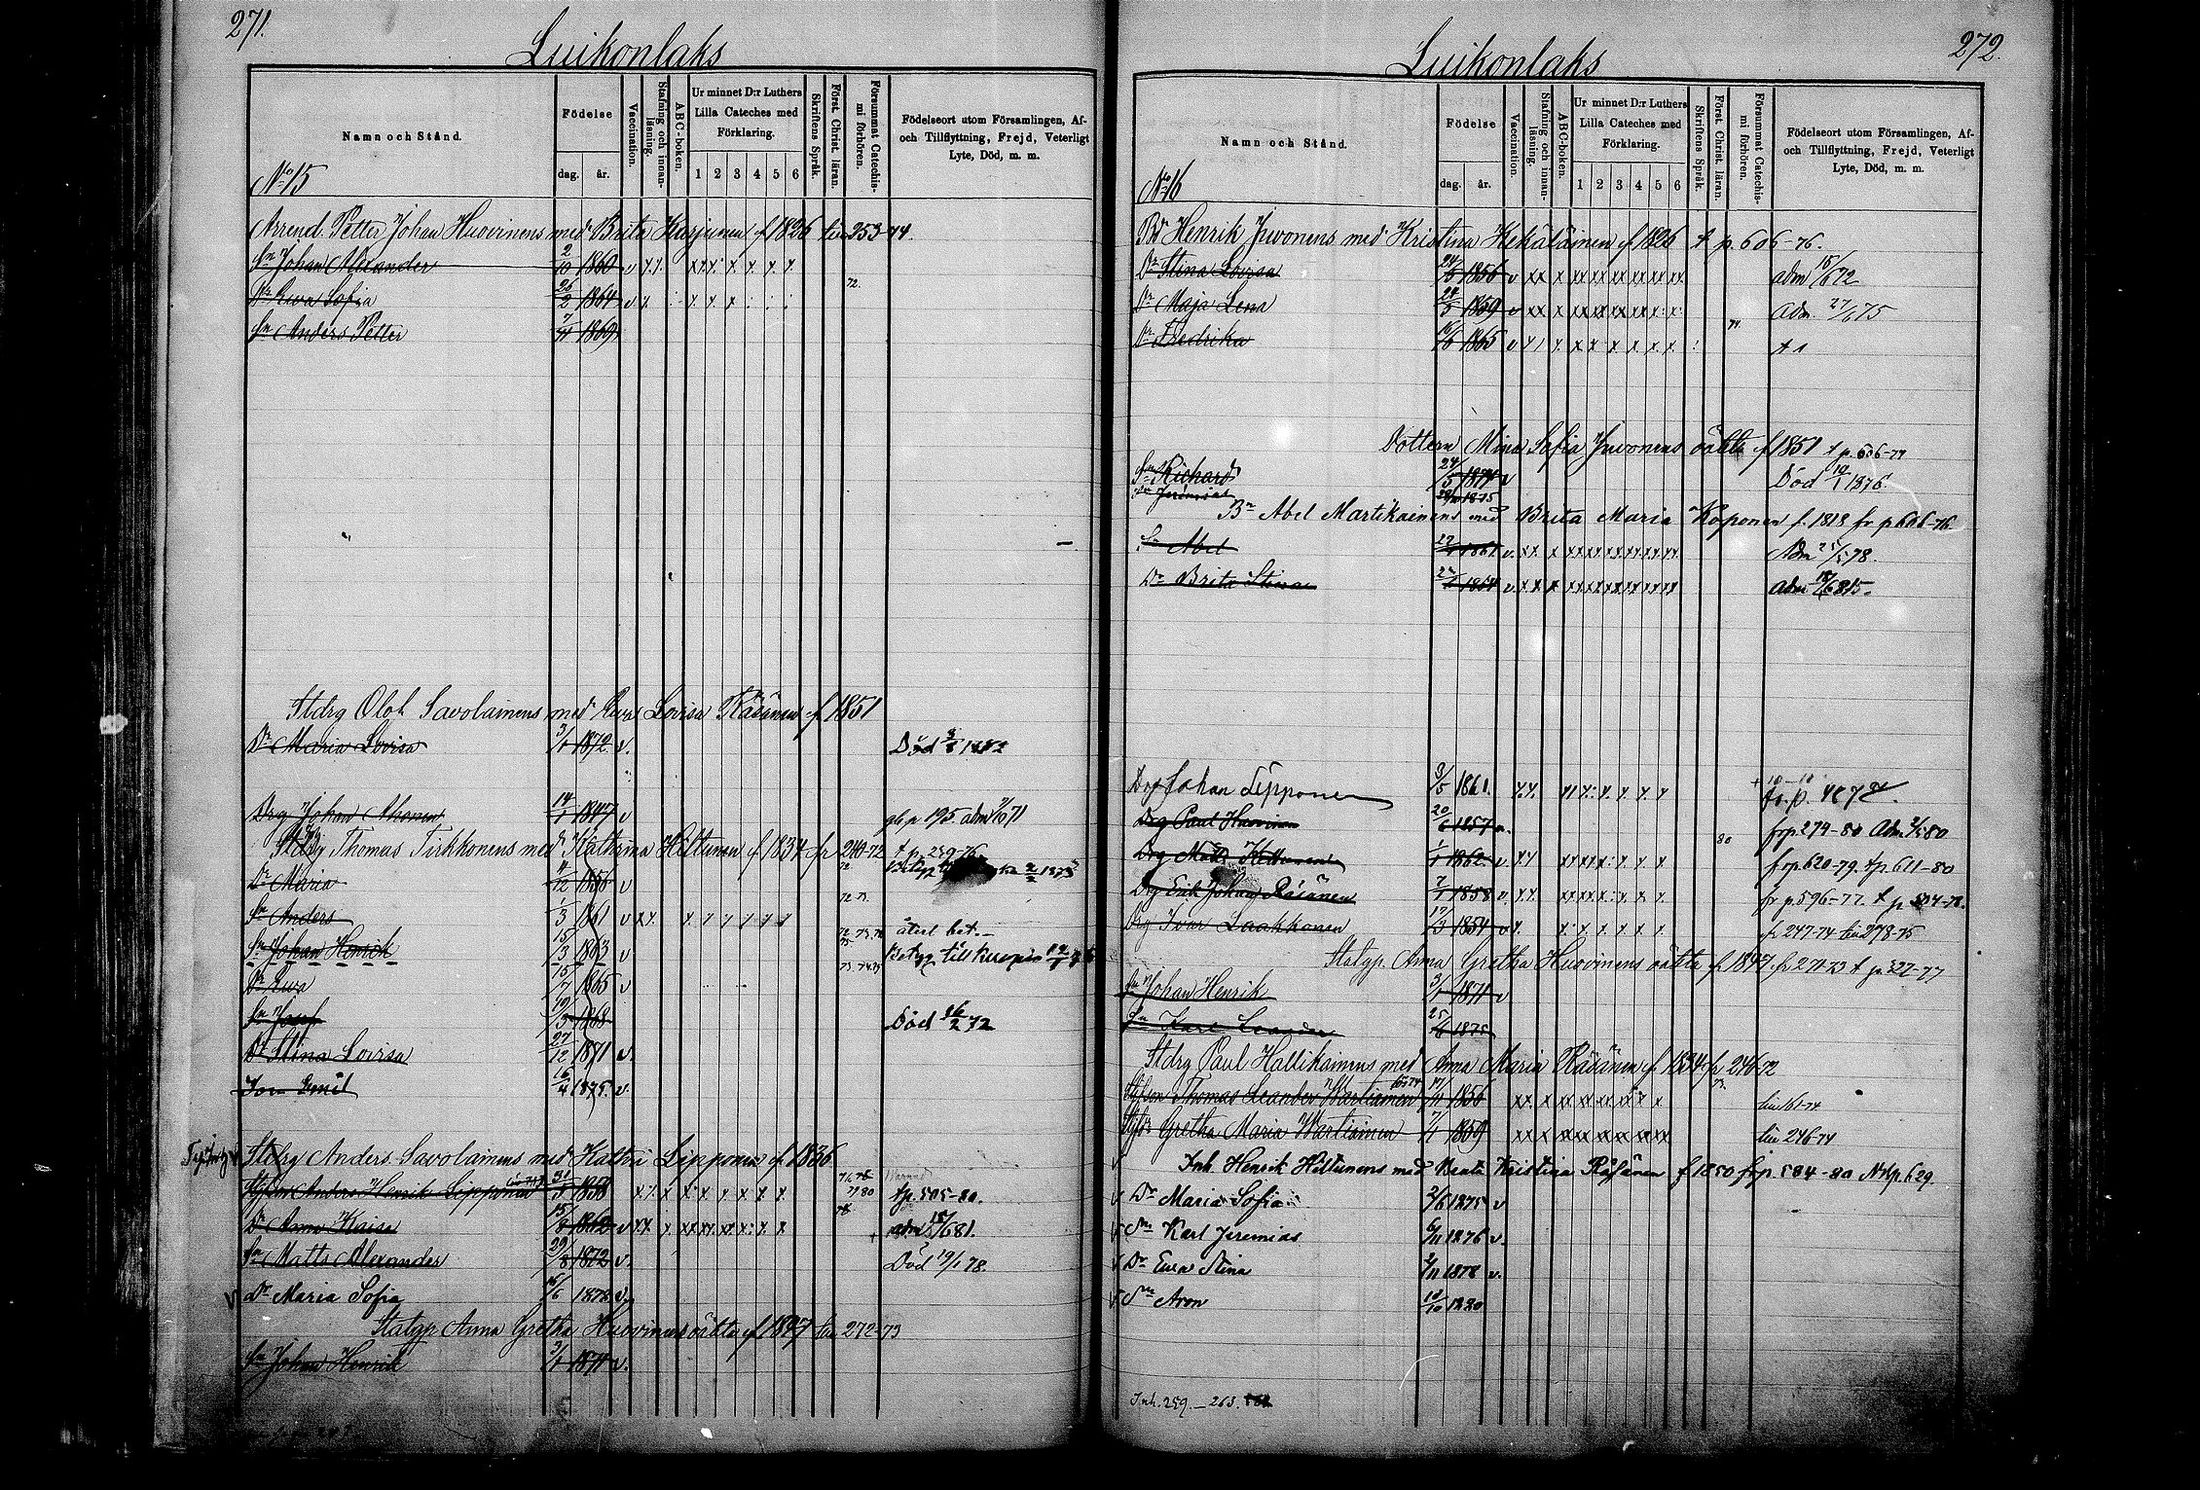 271.
Luikonlaks
Namn och Stånd.
Födelse
dag. år.
Vaccination.
Stafning och innan-läsning.
ABC-boken.
Ur minnet D:r Luthers Lilla Cateches med Förklaring.
1 2 3 4 5 6
Skriftens Språk.
Först. Christ. läran.
Försummat Catechis-mi förhören.
Födelseort utom Församlingen, Af- och Tillflyttning, Frejd, Veterligt Lyte, Död, m. m.
No 15
Arrend. Petter Johan Huovinens med Brita Karjunen f 1826 253-74.
Sn Johan Alexander 2/10 1860 v
Dr Ewa Sofia 26/2 1864 v 72.
Sn Anders Petter 7/11 1869
Stdrg Olof Savolainens med Ewa Lovisa Räsänen f 1851
Dr Maria Lovisa 3/1 1872 v. Död
Drg Johan Ahonen 14/1 1847 v gb p 195
Stdrg Thomas Tirkkonens med Kathrina Hiltunen f 1834 fr 240-72 t p. 259-76
Dr Maria 4/12 1856 v
Sn Anders 1/3 1861 v återl bet.
Sn Johan Henrik 15/3 1863 v Betyg till Kuopio
Dr Ewa 15/7 1865 v
Sn Josef 19/3 1868 Död 16/2 72
Dr Stina Lovisa 27/12 1871 v.
Son Emil 16/4 1875. v.
Stdrg Anders Savolainens med Kattri Lipponen f 1836
Styfson Anders Henrik Lipponen 31/3 1858 tp. 505-80.
Dr Anna Kaisa 15/8 1862 v adm 15/6 81.
Sn Matts Alexander 29/8 1872 v. Död 19/1 78.
Dr Maria Sofia 16/6 1878 v.
Statyp Anna Gretha Huovinens oäkta f 1847 272-73
Sn Johan Henrik 3/1 1871 v.
272.
Luikonlaks
Namn och Stånd.
Födelse
dag. år.
Vaccination.
Stafning och innan-läsning.
ABC-boken.
Ur minnet D:r Luthers Lilla Cateches med Förklaring.
1 2 3 4 5 6
Skriftens Språk.
Först. Christ. läran.
Försummat Catechis-mi förhören.
Födelseort utom Församlingen, Af- och Tillflyttning, Frejd, Veterligt Lyte, Död, m. m.
No 16
Bd Henrik Juvonens med Kristina Kekäläinen f 1826 t p. 606-76.
Dr Stina Lovisa 24/5 1856 v adm 15/6 72
Dr Maja Lena 24/5 1859 v Adm 27/6 75
Dr Fredrika 16/6 1865 v
Dottern Mina Sofia Juvonens oäkta f 1851 t p. 606-77
Sn Richard 24/5 1874 v Död 19/1 1876.
Sn Jeremias 1875
Bn Abel Martikainens med Brita Maria Koponen f. 1818 fr p 606-76
Sn Abel 1861 v. Adm 25/5 78.
Dr Brita Stina 1864 v
Drg Johan Lipponen 3/5 1861.
Drg Paul Huovinen 20/6 1857 v. frp. 279-80 Adm
Drg Matts Kettunen 1/1 1862 v 80 frp 620-79. tp 611-80
Drg Erik Johan Räsänen 7/1 1858 v fr p. 596-77.
Drg Ivar Laakkonen 17/3 1854 v fr 247-74 278-75
Statyp. Anna Gretha Huovinens oäkta f 1847. fr 271-73 t p. 527-77
Sn Johan Henrik 3/1 1871 v
Sn Karl Leander 25/6 1875
Stdrg Paul Hallikainens med Anna Maria Räsänen f 1834 fr 246-72
Styfson Thomas Leander Wartiainen 17/11 1856 161-74
Styfdr Gretha Maria Wartiainen 7/1 1859 246-74
Inh. Henrik Hiltunens med Beata Kristina Räsänen f 1850 frp. 584-80 Ntkp. 629.
Dr Maria Sofia 2/6 1875 v
Sn Karl Jeremias 6/11 1876 v.
Dr Ewa Stina 2/11 1878 v.
Sn Aron 10/10 1880
Inh. 259.-263.